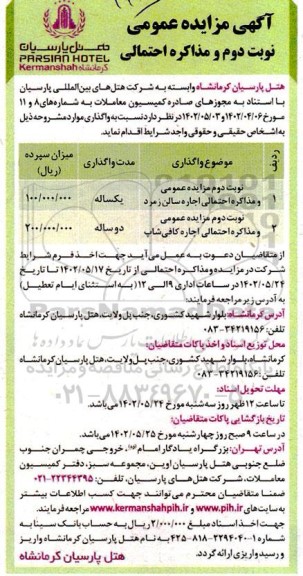 آگهی مزایده عمومی
نوبت دوم و مذاکره احتمالی
هتل پارسیان
PARSIAN HOTEL
کرمانشاه Kermanshah
هتل پارسیان کرمانشاه وابسته به شرکت هتل‌های بین‌المللی پارسیان
با استناد به مجوزهای صادره کمیسیون معاملات به شماره‌های ۸ و ۱۱
مورخ ۱۴۰۲/۰۴/۰۶ و ۱۴۰۲/۰۵/۰۳ در نظر دارد نسبت به واگذاری موارد مشروحه ذیل
به اشخاص حقیقی و حقوقی واجد شرایط اقدام نماید.
ردیف موضوع واگذاری مدت واگذاری میزان سپرده (ریال)
۱ نوبت دوم مزایده عمومی و مذاکره احتمالی اجاره سالن زمرد یکساله ۱۰۰/۰۰۰/۰۰۰
۲ نوبت دوم مزایده عمومی و مذاکره احتمالی اجاره کافی‌شاپ دو ساله ۲۰۰/۰۰۰/۰۰۰
از متقاضیان دعوت به عمل می آید جهت اخذ فرم شرایط
شرکت در مزایده و مذاکره احتمالی از تاریخ ۱۴۰۲/۰۵/۱۷ تا تاریخ
۱۴۰۲/۰۵/۲۴ در ساعات اداری ۹ الی ۱۲ (به استثنای ایام تعطیل)
به آدرس زیر مراجعه فرمایند:
آدرس کرمانشاه: بلوار شهید کشوری، جنب پل ولایت، هتل پارسیان کرمانشاه
تلفن: ۳۴۲۱۹۱۵۶-۰۸۳
محل توزیع اسناد و اخذ پاکات متقاضیان:
کرمانشاه، بلوار شهید کشوری، جنب پل ولایت، هتل پارسیان کرمانشاه
تلفن: ۳۴۲۱۹۱۵۶-۰۸۳
مهلت تحویل اسناد:
تا ساعت ۱۲ ظهر روز سه شنبه مورخ ۱۴۰۲/۰۵/۲۴ می‌باشد.
تاریخ بازگشایی پاکات متقاضیان:
در ساعت ۹ صبح روز چهارشنبه مورخ ۱۴۰۲/۰۵/۲۵ می‌باشد.
آدرس تهران: بزرگراه یادگار امام، خروجی چمران جنوب
ضلع جنوبی هتل پارسیان اوین، مجموعه سبز، دفتر کمیسیون
معاملات، شرکت هتل های پارسیان، تلفن: ۲۲۳۴۴۳۹۵-۰۲۱
ضمنا متقاضیان محترم می‌توانند جهت کسب اطلاعات بیشتر
به سایت‌های www.pih.ir و www.kermanshahpih.ir مراجعه فرمایند.
جهت اخذ اسناد مبلغ ۲/۰۰۰/۰۰۰ ریال به حساب بانک سینا به
شماره ۱-۲۲۹۴۰۴۰-۸۱۸-۴۲۵ به نام هتل پارسیان کرمانشاه واریز
و رسید واریزی ارائه گردد.
هتل پارسیان کرمانشاه